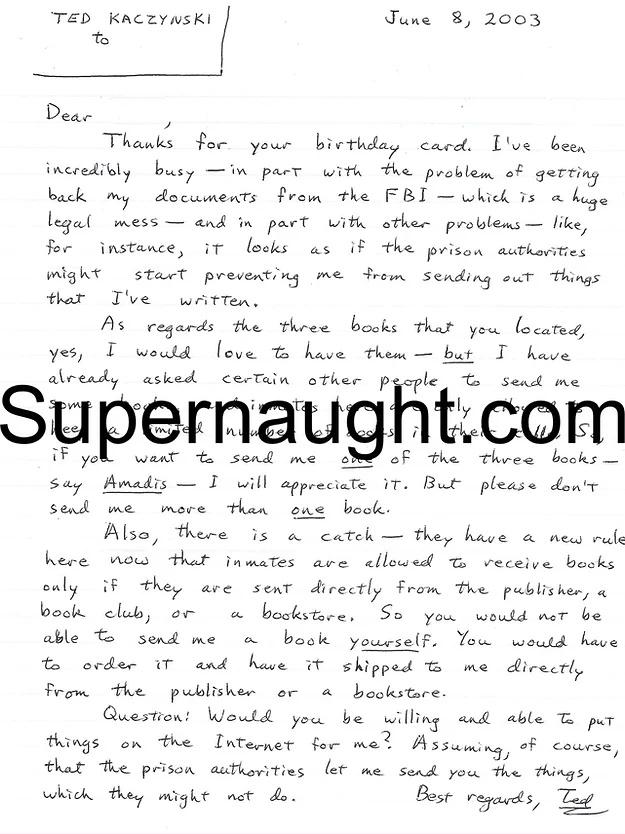 TED KACZYNSKI
to
June 8, 2003
Dear ,
Thanks for your birthday card. I've been
incredibly busy — in part with the problem of getting
back my documents from the FBI — which is a huge
legal mess — and in part with other problems — like,
for instance, it looks as if the prison authorities
might start preventing me from sending out things
that I've written.
As regards the three books that you located,
yes, I would love to have them — but I have
already asked certain other people to send me
some books, and inmates here are only allowed to
Supernaught.com
keep a limited number of books in their cells. So,
if you want to send me one of the three books —
say Amadis — I will appreciate it. But please don't
send me more than one book.
Also, there is a catch — they have a new rule
here now that inmates are allowed to receive books
only if they are sent directly from the publisher, a
book club, or a bookstore. So you would not be
able to send me a book yourself. You would have
to order it and have it shipped to me directly
from the publisher or a bookstore.
Question: Would you be willing and able to put
things on the Internet for me? Assuming, of course,
that the prison authorities let me send you the things,
which they might not do. Best regards, Ted